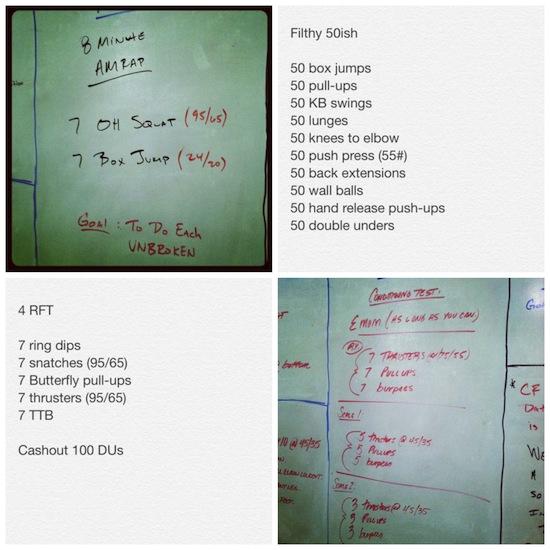 8 MINUTE
AMRAP
7 OH SQUAT (95/65)
7 BOX JUMP (24/20)
GOAL : TO DO EACH
UNBROKEN
Filthy 50ish
50 box jumps
50 pull-ups
50 KB swings
50 lunges
50 knees to elbow
50 push press (55#)
50 back extensions
50 wall balls
50 hand release push-ups
50 double unders
4 RFT
7 ring dips
7 snatches (95/65)
7 Butterfly pull-ups
7 thrusters (95/65)
7 TTB
Cashout 100 DUs
CONDITIONING TEST:
EMOM (AS LONG AS YOU CAN)
RX
7 THRUSTERS
7 PULLUPS
7 burpees
Scale 1:
5 Thrusters @ 45/35
5 Pullups
5 burpees
Scale 2:
3 thrusters @ 45/35
3 Pullups
3 burpees
bottom
@ 45/35
Goal
* CF
is